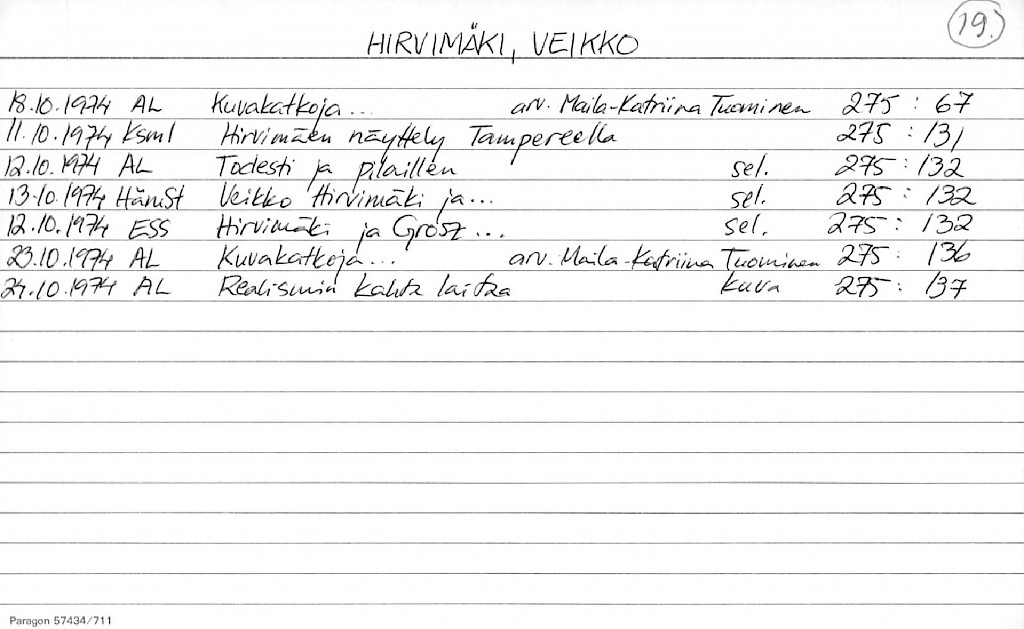 19.
HIRVIMÄKI, VEIKKO
18.10.1974 AL Kuvakatkoja... arv. Maila-Katriina Tuominen 275 : 67
11.10.1974 Ksml Hirvimäen näyttely Tampereella 275 : 131
12.10.1974 AL Todesti ja pilaillen sel. 275 : 132
13.10.1974 HämSt Veikko Hirvimäki ja... sel. 275 : 132
12.10.1974 ESS Hirvimäki ja Grosz... sel. 275 : 132
23.10.1974 AL Kuvakatkoja... arv. Maila-Katriina Tuominen 275 : 136
24.10.1974 AL Realismin kahta laitaa kuva 275 : 137
Paragon 57434/711